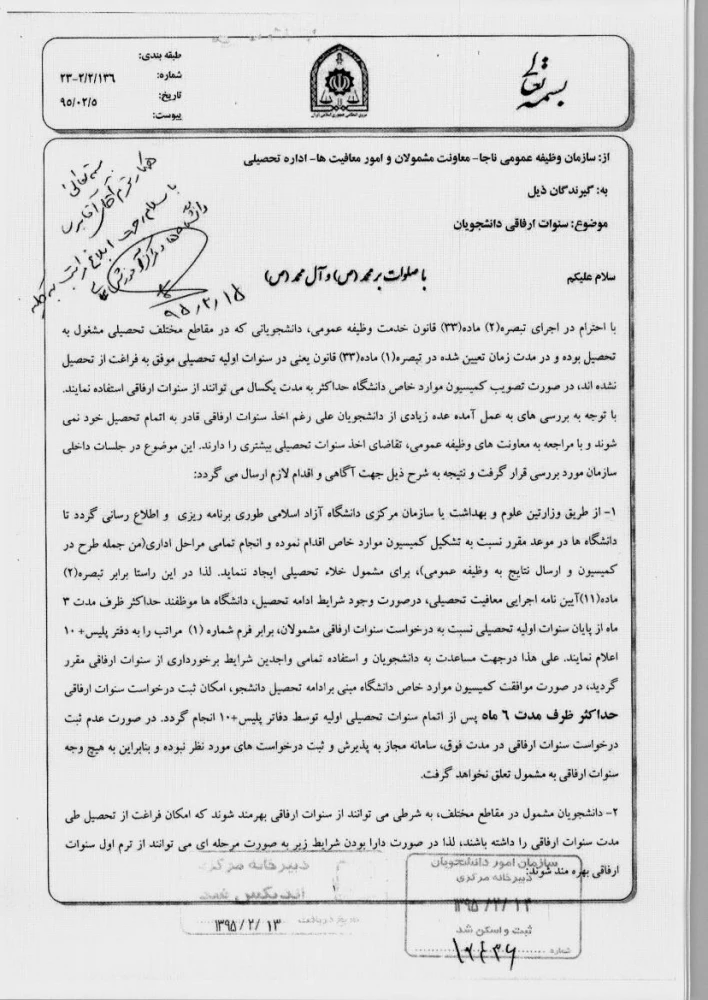 بسمه تعالی
طبقه بندی:
شماره: ۲۳-۲/۲/۱۳۶
تاریخ: ۹۵/۰۲/۵
پیوست:
از: سازمان وظیفه عمومی ناجا- معاونت مشمولان و امور معافیت ها- اداره تحصیلی
به: گیرندگان ذیل
موضوع: سنوات ارفاقی دانشجویان
بسمه تعالی
همکار محترم آقای
با سلام جهت ابلاغ
۹۵/۲/۱۵
سلام علیکم
با صلوات بر محمد (ص) و آل محمد (ص)
با احترام در اجرای تبصره(۲) ماده(۳۳) قانون خدمت وظیفه عمومی، دانشجویانی که در مقاطع مختلف تحصیلی مشغول به
تحصیل بوده و در مدت زمان تعیین شده در تبصره(۱) ماده(۳۳) قانون یعنی در سنوات اولیه تحصیلی موفق به فراغت از تحصیل
نشده اند، در صورت تصویب کمیسیون موارد خاص دانشگاه حداکثر به مدت یکسال می توانند از سنوات ارفاقی استفاده نمایند.
با توجه به بررسی های به عمل آمده عده زیادی از دانشجویان علی رغم اخذ سنوات ارفاقی قادر به اتمام تحصیل خود نمی
شوند و با مراجعه به معاونت های وظیفه عمومی، تقاضای اخذ سنوات تحصیلی بیشتری را دارند. این موضوع در جلسات داخلی
سازمان مورد بررسی قرار گرفت و نتیجه به شرح ذیل جهت آگاهی و اقدام لازم ارسال می گردد:
۱- از طریق وزارتین علوم و بهداشت یا سازمان مرکزی دانشگاه آزاد اسلامی طوری برنامه ریزی و اطلاع رسانی گردد تا
دانشگاه ها در موعد مقرر نسبت به تشکیل کمیسیون موارد خاص اقدام نموده و انجام تمامی مراحل اداری(من جمله طرح در
کمیسیون و ارسال نتایج به وظیفه عمومی)، برای مشمول خلاء تحصیلی ایجاد ننماید. لذا در این راستا برابر تبصره(۲)
ماده(۱۱)آیین نامه اجرایی معافیت تحصیلی، درصورت وجود شرایط ادامه تحصیل، دانشگاه ها موظفند حداکثر ظرف مدت ۳
ماه از پایان سنوات اولیه تحصیلی نسبت به درخواست سنوات ارفاقی مشمولان، برابر فرم شماره (۱) مراتب را به دفتر پلیس+ ۱۰
اعلام نمایند. علی هذا درجهت مساعدت به دانشجویان و استفاده تمامی واجدین شرایط برخورداری از سنوات ارفاقی مقرر
گردید، در صورت موافقت کمیسیون موارد خاص دانشگاه مبنی برادامه تحصیل دانشجو، امکان ثبت درخواست سنوات ارفاقی
حداکثر ظرف مدت ۶ ماه پس از اتمام سنوات تحصیلی اولیه توسط دفاتر پلیس+۱۰ انجام گردد. در صورت عدم ثبت
درخواست سنوات ارفاقی در مدت فوق، سامانه مجاز به پذیرش و ثبت درخواست های مورد نظر نبوده و بنابراین به هیچ وجه
سنوات ارفاقی به مشمول تعلق نخواهد گرفت.
۲- دانشجویان مشمول در مقاطع مختلف، به شرطی می توانند از سنوات ارفاقی بهرمند شوند که امکان فراغت از تحصیل طی
مدت سنوات ارفاقی را داشته باشند، لذا در صورت دارا بودن شرایط زیر به صورت مرحله ای می توانند از ترم اول سنوات
ارفاقی بهره مند شوند:
۱
سازمان امور دانشجویان
دبیرخانه مرکزی
۱۳۹۵/۲/۱۳
ثبت و اسکن شد
شماره
۱۲۴۳۶
دبیرخانه مرکزی
اندیکس شد
تاریخ دریافت
۱۳۹۵/۲/۱۳